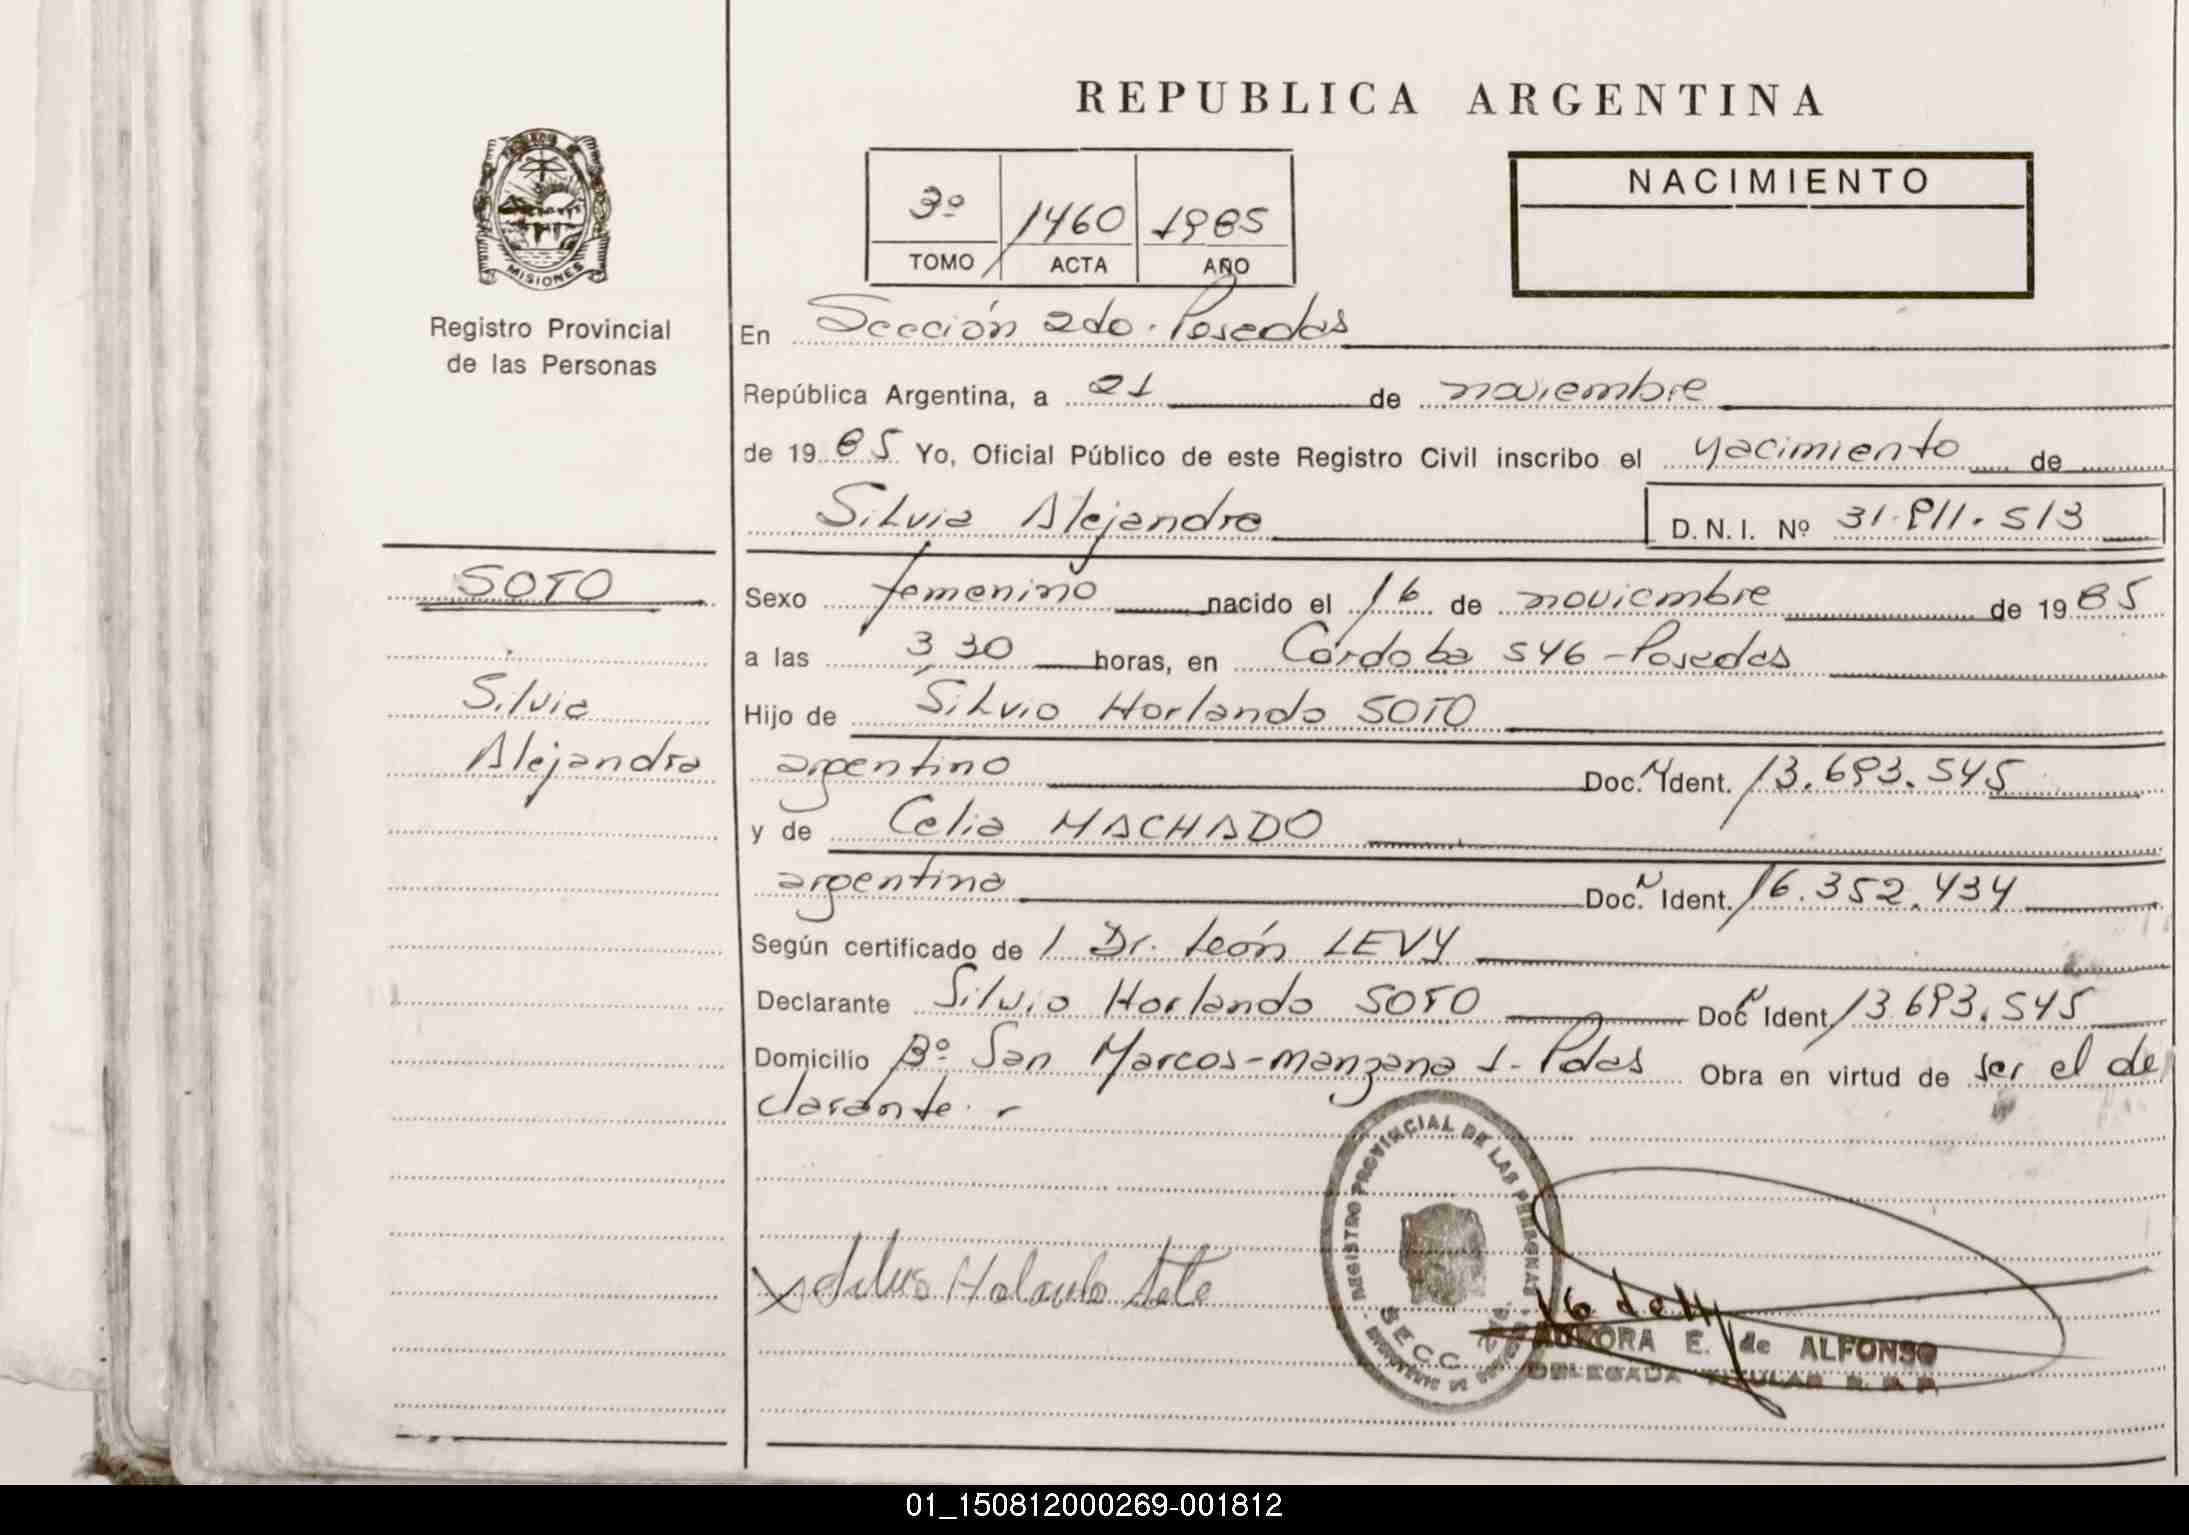 REPUBLICA ARGENTINA
MISIONES
Registro Provincial
de las Personas
3º 1460 1985
TOMO ACTA AÑO
NACIMIENTO
En Sección 2do. Posadas
República Argentina, a 21 de noviembre
de 1985 Yo, Oficial Público de este Registro Civil inscribo el nacimiento de
Silvia Alejandra D.N.I. Nº 31.911.513
SOTO
Silvia
Alejandra
Sexo femenino nacido el 16 de noviembre de 1985
a las 3 30 horas, en Córdoba 546 - Posadas
Hijo de Silvio Horlando SOTO
argentino Doc. N Ident. 13.693.545
y de Celia MACHADO
argentina Doc. N Ident. 16.352.434
Según certificado de l Dr. León LEVY
Declarante Silvio Horlando SOTO Doc N Ident. 13.693.545
Domicilio Bº San Marcos - manzana 1 - Pdas Obra en virtud de ser el de
clarante. -
REGISTRO PROVINCIAL DE LAS PERSONAS
SECC.
AURORA E. de ALFONSO
DELEGADA TITULAR R. P. P.
01_150812000269-001812